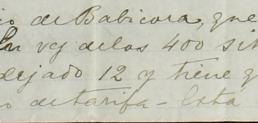 io de Babicora, que
En vez de los 400 sit
dejado 12 y tiene q
o de tarifa - Esta